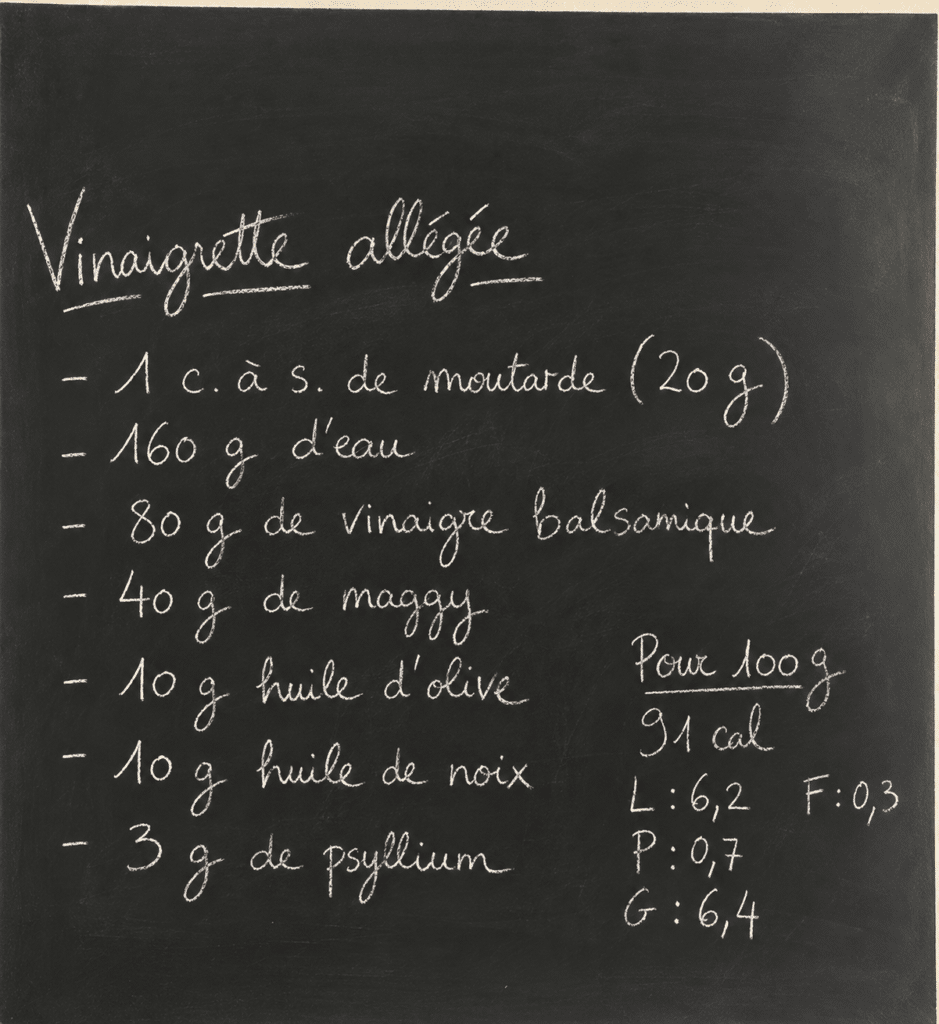 Vinaigrette allégée
- 1 c. à s. de moutarde (20 g)
- 160 g d'eau
- 80 g de vinaigre balsamique
- 40 g de maggy
- 10 g huile d'olive
- 10 g huile de noix
- 3 g de psyllium
Pour 100 g
91 cal
L : 6,2 F : 0,3
P : 0,7
G : 6,4